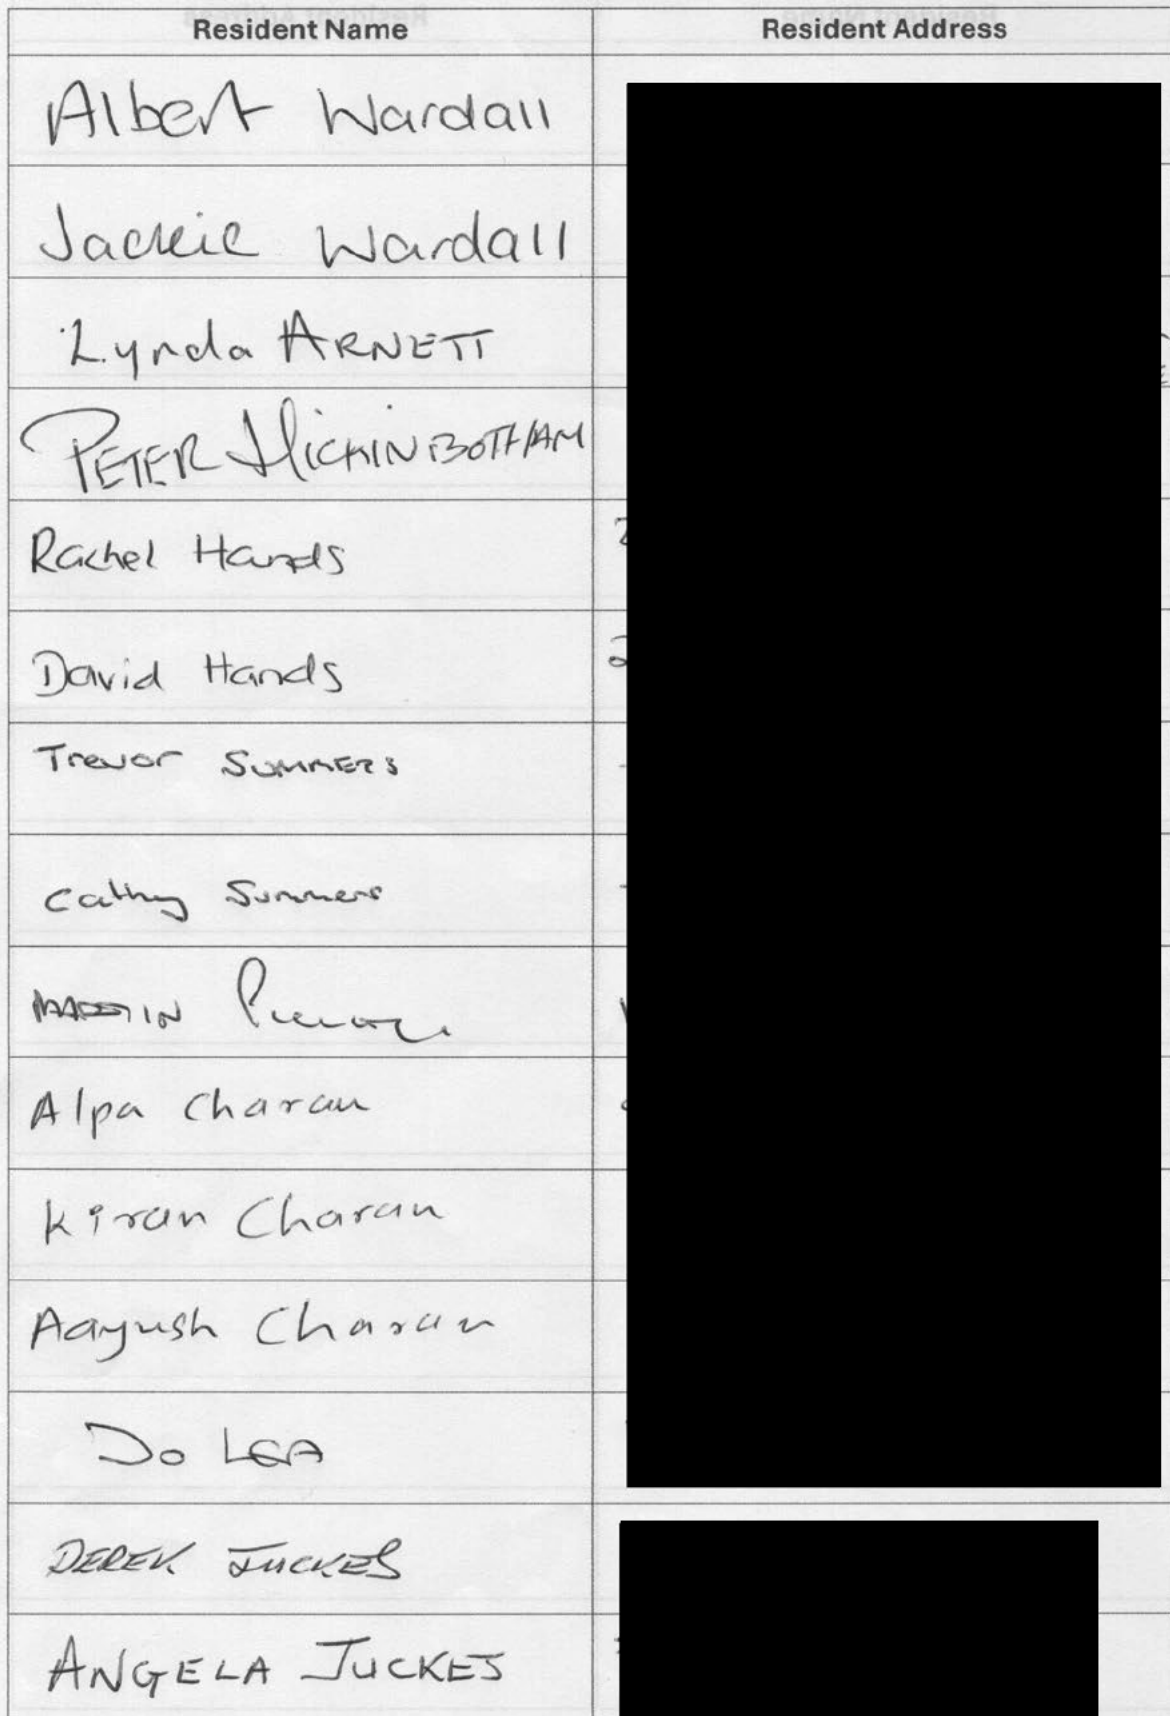 Resident Name Resident Address
Albert Wardall
Jackie Wardall
Lynda ARNETT
PETER HICKINBOTHAM
Rachel Hands
David Hands
Trevor SUMMERS
Cathy Summers
MARTIN
Alpa Charan
Kiran Charan
Aayush Charan
Jo LEA
DEREK JUCKES
ANGELA JUCKES